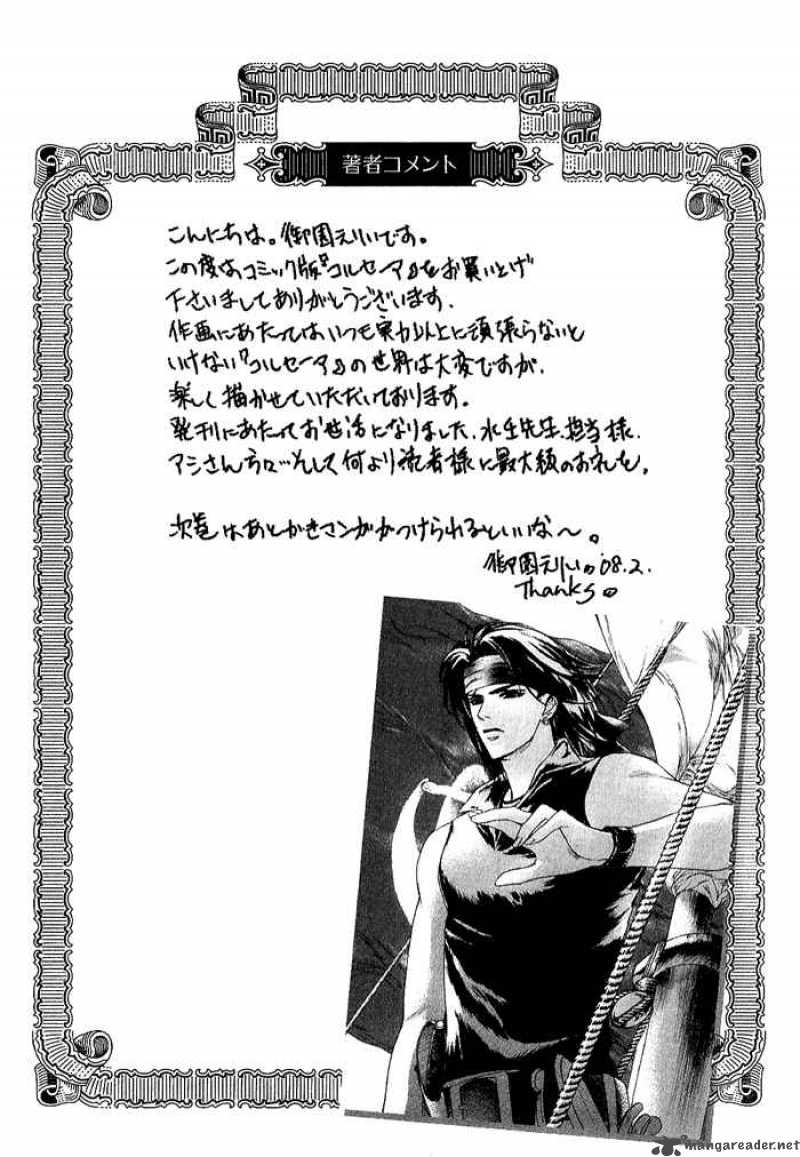 著者コメント
こんにちは。御園えりいです。
この度はコミック版『コルセーア』をお買いとげ
下さいましてありがとうございます。
作画にあたってはいつも実力以上に頑張らないと
いけない『コルセーア』の世界は大変ですが、
楽しく描かせていただいております。
発刊にあたってお世話になりました、水壬先生、担当様、
アシさん方々…そして何より読者様に最大級のお礼を。
次巻はあとがきマンガがつけられるといいな〜。
御園えりい '08.2.
Thanks
mangareader.net